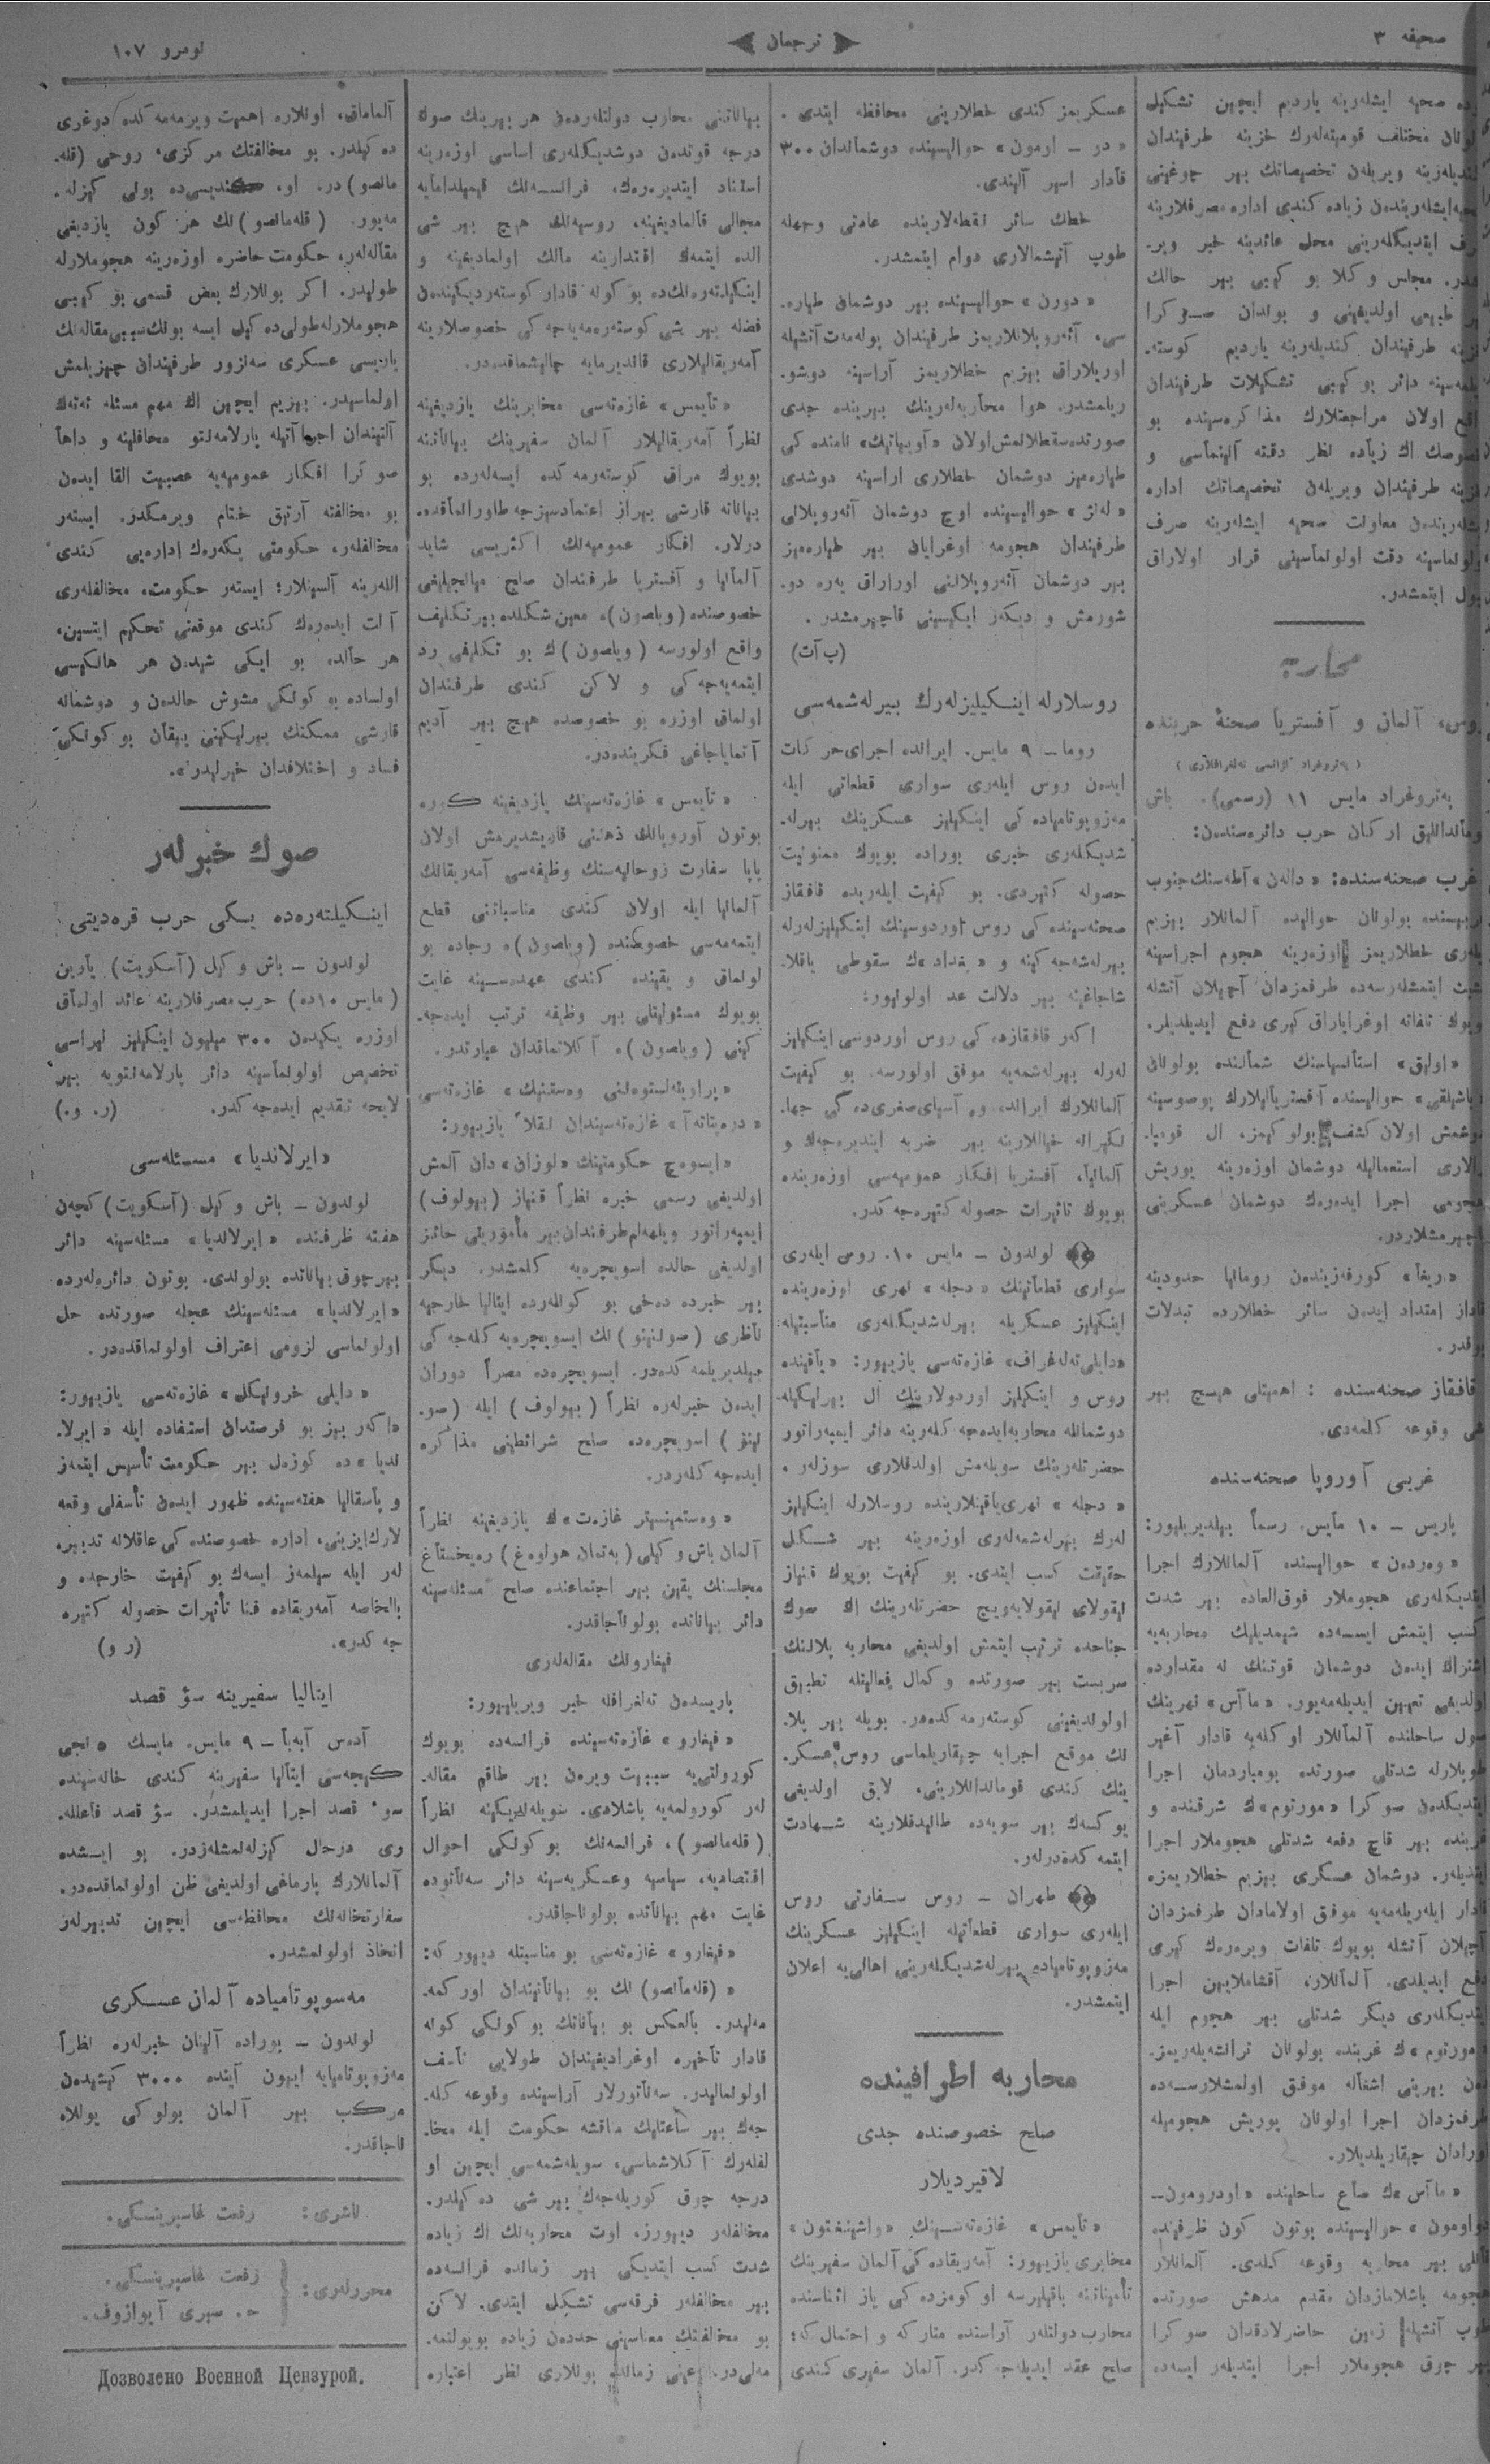 صحیفه ۳
ترجمان
نومرو ۱۰۷
ده صحیه ایشلەرینه یاردیم ایچین تشکیل
مختلف قومیتەلەرك خزینه طرفیندان
ویریلەن تخصیصاتك بیر چوغینی
زیاده کندی اداره مصرفلارینه
ایتدیکلەرینی محل عائدینه خبر ویر
مجلس وکلا بو کیبی بیر حالك
طبیعی اولدیغینی و بوندان صوکرا
طرفیندان کندیلەرینه یاردیم کوستە
دائر بو کیبی تشکیلات طرفیندان
اولان مراجعتلارك مذاکرەسینده بو
اك زیاده نظر دقته آلینماسی و
طرفیندان ویریلەن تخصیصاتك اداره
معاونت صحیه ایشلەرینه صرف
دقت اولونماسینی قرار اولاراق
ایتمشدر.
محاربه
روس، آلمان و آفستریا صحنۀ حربنده
(پەتروغراد آژانسی تەلغرافلاری)
پەتروغراد مایس ۱۱ (رسمی). باش
ارکان حرب دائرەسندەن:
غرب صحنەسنده: «دالەن» آطەسنك جنوب
بولونان حوالیده آلمانلار بیزیم
خطلاریمز اوزەرینه هجوم اجراسینه
ایتمشلەرسەده طرفمزدان آچیلان آتشله
تلفاته اوغرایاراق کیری دفع ایدیلدیلر.
«اولیق» استانسیاسنك شمالنده بولونان
حوالیسنده آفستریالیلارك پوصوسینه
دوشمش اولان کشف بولوکیمز، ال قومبا
استعمالیله دوشمان اوزەرینه یوریش
هجومی اجرا ایدەرەك دوشمان عسکرینی
«ریغا» کورفەزیندەن رومانیا حدودینه
قادار امتداد ایدەن سائر خطلارده تبدلات
یوقدر.
قافقاز صحنەسنده: اهمیتلی هیچ بیر
شی وقوعه کلمەدی.
غربی آوروپا صحنەسنده
پاریس – ۱۰ مایس. رسماً بیلدیریلیور:
«وەردەن» حوالیسنده آلمانلارك اجرا
ایتدیکلەری هجوملار فوق‌العاده بیر شدت
کسب ایتمش ایسەده شیمدیلیك محاربەیه
اشتراك ایدەن دوشمان قوتنك نه مقدارده
اولدیغی تعیین ایدیلەمەیور. «ماآس» نهرینك
صول ساحلنده آلمانلار اوکلەیه قادار آغیر
طوپلارله شدتلی صورتده بومباردمان اجرا
ایتدیکدەن صوکرا «مورتوم»ك شرقنده و
غربنده بیر قاچ دفعه شدتلی هجوملار اجرا
ایتدیلەر. دوشمان عسکری بیزیم خطلاریمزه
قادار ایلەریلەمەیه موفق اولامادان طرفمزدان
آچیلان آتشله بویوك تلفات ویرەرەك کیری
دفع ایدیلدی. آلمانلار، آقشاملایین اجرا
ایتدیکلەری دیکر شدتلی بیر هجوم ایله
«مورتوم»ك غربنده بولونان ترانشەیلەریمز
بیرینی اشغاله موفق اولمشلارسەده
طرفمزدان اجرا اولونان یوریش هجومیله
اورادان چیقاریلدیلار.
«ماآس»ك صاغ ساحلینده «اودرومون–
دواومون» حوالیسینده بوتون کون ظرفینده
بیر محاربه وقوعه کلدی. آلمانلار
هجومه باشلامازدان مقدم مدهش صورتده
طوپ آتشیله زمین حاضرلادقدان صوکرا
بیر چوق هجوملار اجرا ایتدیلەر ایسەده
عسکریمز کندی خطلارینی محافظه ایتدی.
«دو – اومون» حوالیسینده دوشماندان ۳۰۰
قادار اسیر آلیندی.
خطك سائر نقطەلارینده عادتی وجهله
طوپ آتیشمالاری دوام ایتمشدر.
«دورن» حوالیسینده بیر دوشمان طیاره
سی، آئەروپلانلاریمز طرفیندان پولەمەت آتشیله
اورولاراق بیزیم خطلاریمز آراسینه دوشو
ریلمشدر. هوا محاربەلەرینك بیرینده جدی
صورتده سقطلانمش اولان «آویاتیك» نامنده کی
طیارەمیز دوشمان خطلاری اراسینه دوشدی
«لەنژ» حوالیسینده اوچ دوشمان آئەروپلانی
طرفیندان هجومه اوغرایان بیر طیارەمیز
بیر دوشمان آئەروپلانینی اوراراق یەره دو
شورمش و دیکەر ایکیسینی قاچیرمشدر.
(پ آت)
روسلارله اینکیلیزلەرك بیرلەشمەسی
روما – ۹ مایس. ایرانده اجرای حرکات
ایدەن روس ایلەری سواری قطعاتی ایله
مەزوپوتامیاده کی اینکیلیز عسکرینك بیرلە
شدیکلەری خبری بوراده بویوك ممنونیت
حصوله کتیردی. بو کیفیت ایلەریده قافقاز
صحنەسینده کی روس اوردوسینك اینکیلیزلەرله
بیرلەشەجەکینه و «بغداد»ك سقوطی یاقلا
شاجاغینه بیر دلالت عد اولونیور:
اکەر قافقازده کی روس اوردوسی اینکیلیز
لەرله بیرلەشمەیه موفق اولورسه، بو کیفیت
آلمانلارك ایرانده و آسیای صغری‌ده کی جها
نکیرانه خیاللارینه بیر ضربه ایندیرەجەك و
آلمانیا، آفستریا افکار عمومیەسی اوزەرینده
بویوك تاثیرات حصوله کتیرەجەکدر.
لوندون – مایس ۱۰. روس ایلەری
سواری قطعاتنك «دجله» نهری اوزەرینده
اینکیلیز عسکریله بیرلەشدیکلەری مناسبتیله
«دایلی تەلەغراف» غازەتەسی یازیور: «یاقینده
روس و اینکیلیز اوردولارینك ال بیرلیکیله
دوشمانله محاربه ایدەجەکلەرینه دائر ایمپەراتور
حضرتلەرینك سویلەمش اولدقلاری سوزلەر،
«دجله» نهری یاقینلارینده روسلارله اینکیلیز
لەرك بیرلەشمەلەری اوزەرینه بیر شکل
حقیقت کسب ایتدی. بو کیفیت بویوك قنیاز
نیقولای نیقولایەویچ حضرتلەرینك اك صوك
جناحده ترتیب ایتمش اولدیغی محاربه پلانینك
سربست بیر صورتده و کمال فعالیتله تطبیق
اولوندیغینی کوستەرمەکدەدر. بویله بیر پلا
نك موقع اجرایه چیقاریلماسی روس عسکر
ینك کندی قومانداانلارینی، لایق اولدیغی
یوکسەك بیر سویەده طانیدقلارینه شهادت
ایتمەکدەدرلەر.
طهران – روس سفارتی روس
ایلەری سواری قطعاتیله اینکیلیز عسکرینك
مەزوپوتامیاده بیرلەشدیکلەرینی اهالی‌یه اعلان
ایتمشدر.
محاربه اطرافینده
صلح خصوصنده جدی
لاقیردیلار
«تایمس» غازەتەسینك «واشینغتون»
مخابری یازیور: آمەریقاده کی آلمان سفیرینك
تأمیناتنه باقیلیرسه اوکومزده کی یاز اثناسنده
محارب دولتلەر آراسنده متارکه و احتمال که؛
صلح عقد ایدیلەجەکدر. آلمان سفیری کندی
بیاناتنی محارب دولتلەردەن هر بیرینك صوك
درجه قوتدەن دوشدیکلەری اساسی اوزەرینه
استناد ایتدیرەرەك، فرانسەنك قیمیلدامایه
مجالی قالمادیغینه، روسیەنك هیچ بیر شی
الده ایتمەك اقتدارینه مالك اولمادیغینه و
اینکیلتەرەنك‌ده بو کونه قادار کوستەردیکیندەن
فضله بیر شی کوستەرەمەیەجەکی خصوصلارینه
آمەریقالیلاری قاندیرمایه چالیشماقدەدر.
«تایمس» غازەتەسی مخابرینك یازدیغینه
نظراً آمەریقالیلار آلمان سفیرینك بیاناتینه
بویوك مراق کوستەرمەکده ایسەلەرده بو
بیاناته قارشی بیراز اعتمادسیزجه طاورانماقده
درلار. افکار عمومیەنك اکثریسی شاید
آلمانیا و آفستریا طرفندان صلح میانجیلیغی
خصوصنده (ویلصون)ه معین شکلده بیر تکلیف
واقع اولورسه (ویلصون)ك بو تکلیفی رد
ایتمەیەجەکی و لاکن کندی طرفندان
اولماق اوزره بو خصوصده هیچ بیر آدیم
آتمایاجاغی فکرینده‌در.
«تایمس» غازەتەسینك یازدیغینه کوره
بوتون آوروپانك ذهننی قاریشدیرمش اولان
پاپا سفارت روحانیەسنك وظیفەسی آمەریقانك
آلمانیا ایله اولان کندی مناسباتنی قطع
ایتمەمەسی خصوصنده (ویلصون)ه رجاده بو
لونماق و یقینده کندی عهدەسینه غایت
بویوك مسئولیتلی بیر وظیفه ترتب ایدەجە
کینی (ویلصون)ه آکلاتماقدان عبارتدر.
غازەتەسی
غازەتەسیندان نقلاً یازیور:
«ایسوەچ حکومتینك «لوزان»دان آلمش
اولدیغی رسمی خبره نظراً قنیاز (بیولوف)
ایمپەراتور ویلهەلم طرفندان بیر مأموریتی حائز
اولدیغی حالده اسویچرەیه کلمشدر. دیکر
بیر خبرده دەخی بو کونلەرده ایتالیا خارجیه
ناظری (صوننینو)نك ایسویچرەیه کلەجەکی
بیلدیریلمەکدەدر. ایسویچرەده مصراً دوران
ایدەن خبرلەره نظراً (بیولوف) ایله (صو
نینو) اسویچرەده صلح شرائطنی مذاکره
ایدەجەکلەردر.
«وەستمینستر غازەت»ك یازدیغینه نظراً
آلمان باش وکیلی (بەتمان هولوەغ) رەیخستاغ
مجلسنك یقین بیر اجتماعنده صلح مسئلەسینه
دائر بیاناتده بولوناجاقدر.
فیغارونك مقالەلەری
پاریسدەن تەلغرافله خبر ویریلییور:
«فیغارو» غازەتەسینده فرانسەده بویوك
کورولتی‌یه سببیت ویرەن بیر طاقم مقاله
لەر کورولمەیه باشلادی. سویلەندیکینه نظراً
(قلەمانصو)، فرانسەنك بوکونکی احوال
اقتصادیه، سیاسیه وعسکریەسینه دائر سەناتوده
غایت مهم بیاناتده بولوناجاقدر.
«فیغارو» غازەتەسی بو مناسبتله دیورکه:
«(قلەمانصو)نك بو بیاناتیندان اورکمە
مەلیدر. بالعکس بو بیاناتك بوکونکی کونه
قادار تأخیره اوغرادیغیندان طولایی تأسف
اولونمالیدر. سەناتورلار آراسینده وقوعه کلە
جەك بیر ساعتلیك مناقشه حکومت ایله مخا
لفلەرك آکلاشماسی، سویلەشمەسی ایچین او
درجه چوق کوریلەجەك بیر شی دەکیلدر.
مخالفلەر دیورز، اوت محاربەنك اك زیاده
شدت کسب ایتدیکی بیر زمانده فرانسەده
بیر مخالفلەر فرقەسی تشکیل ایتدی. لاکن
بو مخالفتك معناسینی حددەن زیاده بویولتمە
مەلی‌در. عینی زمانده بونلاری نظر اعتباره
آلماماق، اونلاره اهمیت ویرمەمەکده دوغری
دەکیلدر. بو مخالفتك مرکزی، روحی (قله
مانصو)در. او، کندیسی‌ده بونی کیزلە
مەیور. (قلەمانصو)نك هر کون یازدیغی
مقالەلەر، حکومت حاضره اوزەرینه هجوملارله
طولیدر. اکر بونلارك بعض قسمی بو کیبی
هجوملارله طولی دەکیل ایسه بونك سببی مقالەنك
یاریسی عسکری سەنزور طرفیندان چیزیلمش
اولماسیدر. بیزیم ایچین اك مهم مسئله تەتەك
آلتیندان اجراآتیله پارلامەنتو محافلینه و داها
صوکرا افکار عمومیەیه عصبیت القا ایدەن
بو مخالفته آرتیق ختام ویرمکدر. ایستەر
مخالفلەر، حکومتی یکەرەك ادارەیی کندی
اللەرینه آلسینلار؛ ایستەر حکومت، مخالفلەری
آلت ایدەرەك کندی موقعنی تحکیم ایتسین،
هر حالده بو ایکی شیدەن هر هانکیسی
اولساده بو کونکی مشوش حالدەن و دوشمانه
قارشی ممکنك بیرلیکینی ییقان بوکونکی
فساد و اختلافدان خیرلیدر».
صوك خبرلەر
اینکیلتەرەده یکی حرب قرەدیتی
لوندون – باش وکیل (آسکویت) یارین
(مایس ۱۰ده) حرب مصرفلارینه عائد اولماق
اوزره یکیدەن ۳۰۰ میلیون اینکیلیز لیراسی
تخصیص اولونماسینه دائر پارلامەنتویه بیر
لایحه تقدیم ایدەجەکدر. (ر. و.)
«ایرلاندیا» مسئلەسی
لوندون – باش وکیل (آسکویت) کچەن
هفته ظرفنده «ایرلاندیا» مسئلەسینه دائر
بیر چوق بیاناتده بولوندی. بوتون دائرەلەرده
«ایرلاندیا» مسئلەسینك عجله صورتده حل
اولونماسی لزومی اعتراف اولونماقدەدر.
«دایلی خرونیکل» غازەتەسی یازیور:
«اکەر بیز بو فرصتدان استفاده ایله «ایرلا
ندیا»ده کوزەل بیر حکومت تأسیس ایتمەز
و پاسقالیا هفتەسینده ظهور ایدەن تأسفلی وقعه
لارك ایزینی، اداره خصوصنده کی عاقلانه تدبیر
لەر ایله سیلمەز ایسەك بو کیفیت خارجده و
بالخاصه آمەریقاده فنا تأثیرات حصوله کتیره
جەکدر». (ر و)
ایتالیا سفیرینه سؤ قصد
آدەس آبەبا – ۹ مایس. مایسك ۵نجی
کیجەسی ایتالیا سفیرینه کندی خانەسینده
سوء قصد اجرا ایدیلمشدر. سؤ قصد فاعللە
ری درحال کیزلەنمشلەزدر. بو ایشده
آلمانلارك پارماغی اولدیغی ظن اولونماقدەدر.
سفارتخانەنك محافظەسی ایچین تدبیرلەر
اتخاذ اولونمشدر.
مەسوپوتامیاده آلمان عسکری
لوندون – بوراده آلینان خبرلەره نظراً
مەزوپوتامیایه ایون آینده ۳۰۰۰ کیشیدەن
مرکب بیر آلمان بولوکی یوللا
ناجاقدر.
ناشری: رفعت غاسپرینسکی.
محررلەری: رفعت غاسپرینسکی.
ح. صبری آیوازوف.
Дозволено Военной Цензурой.